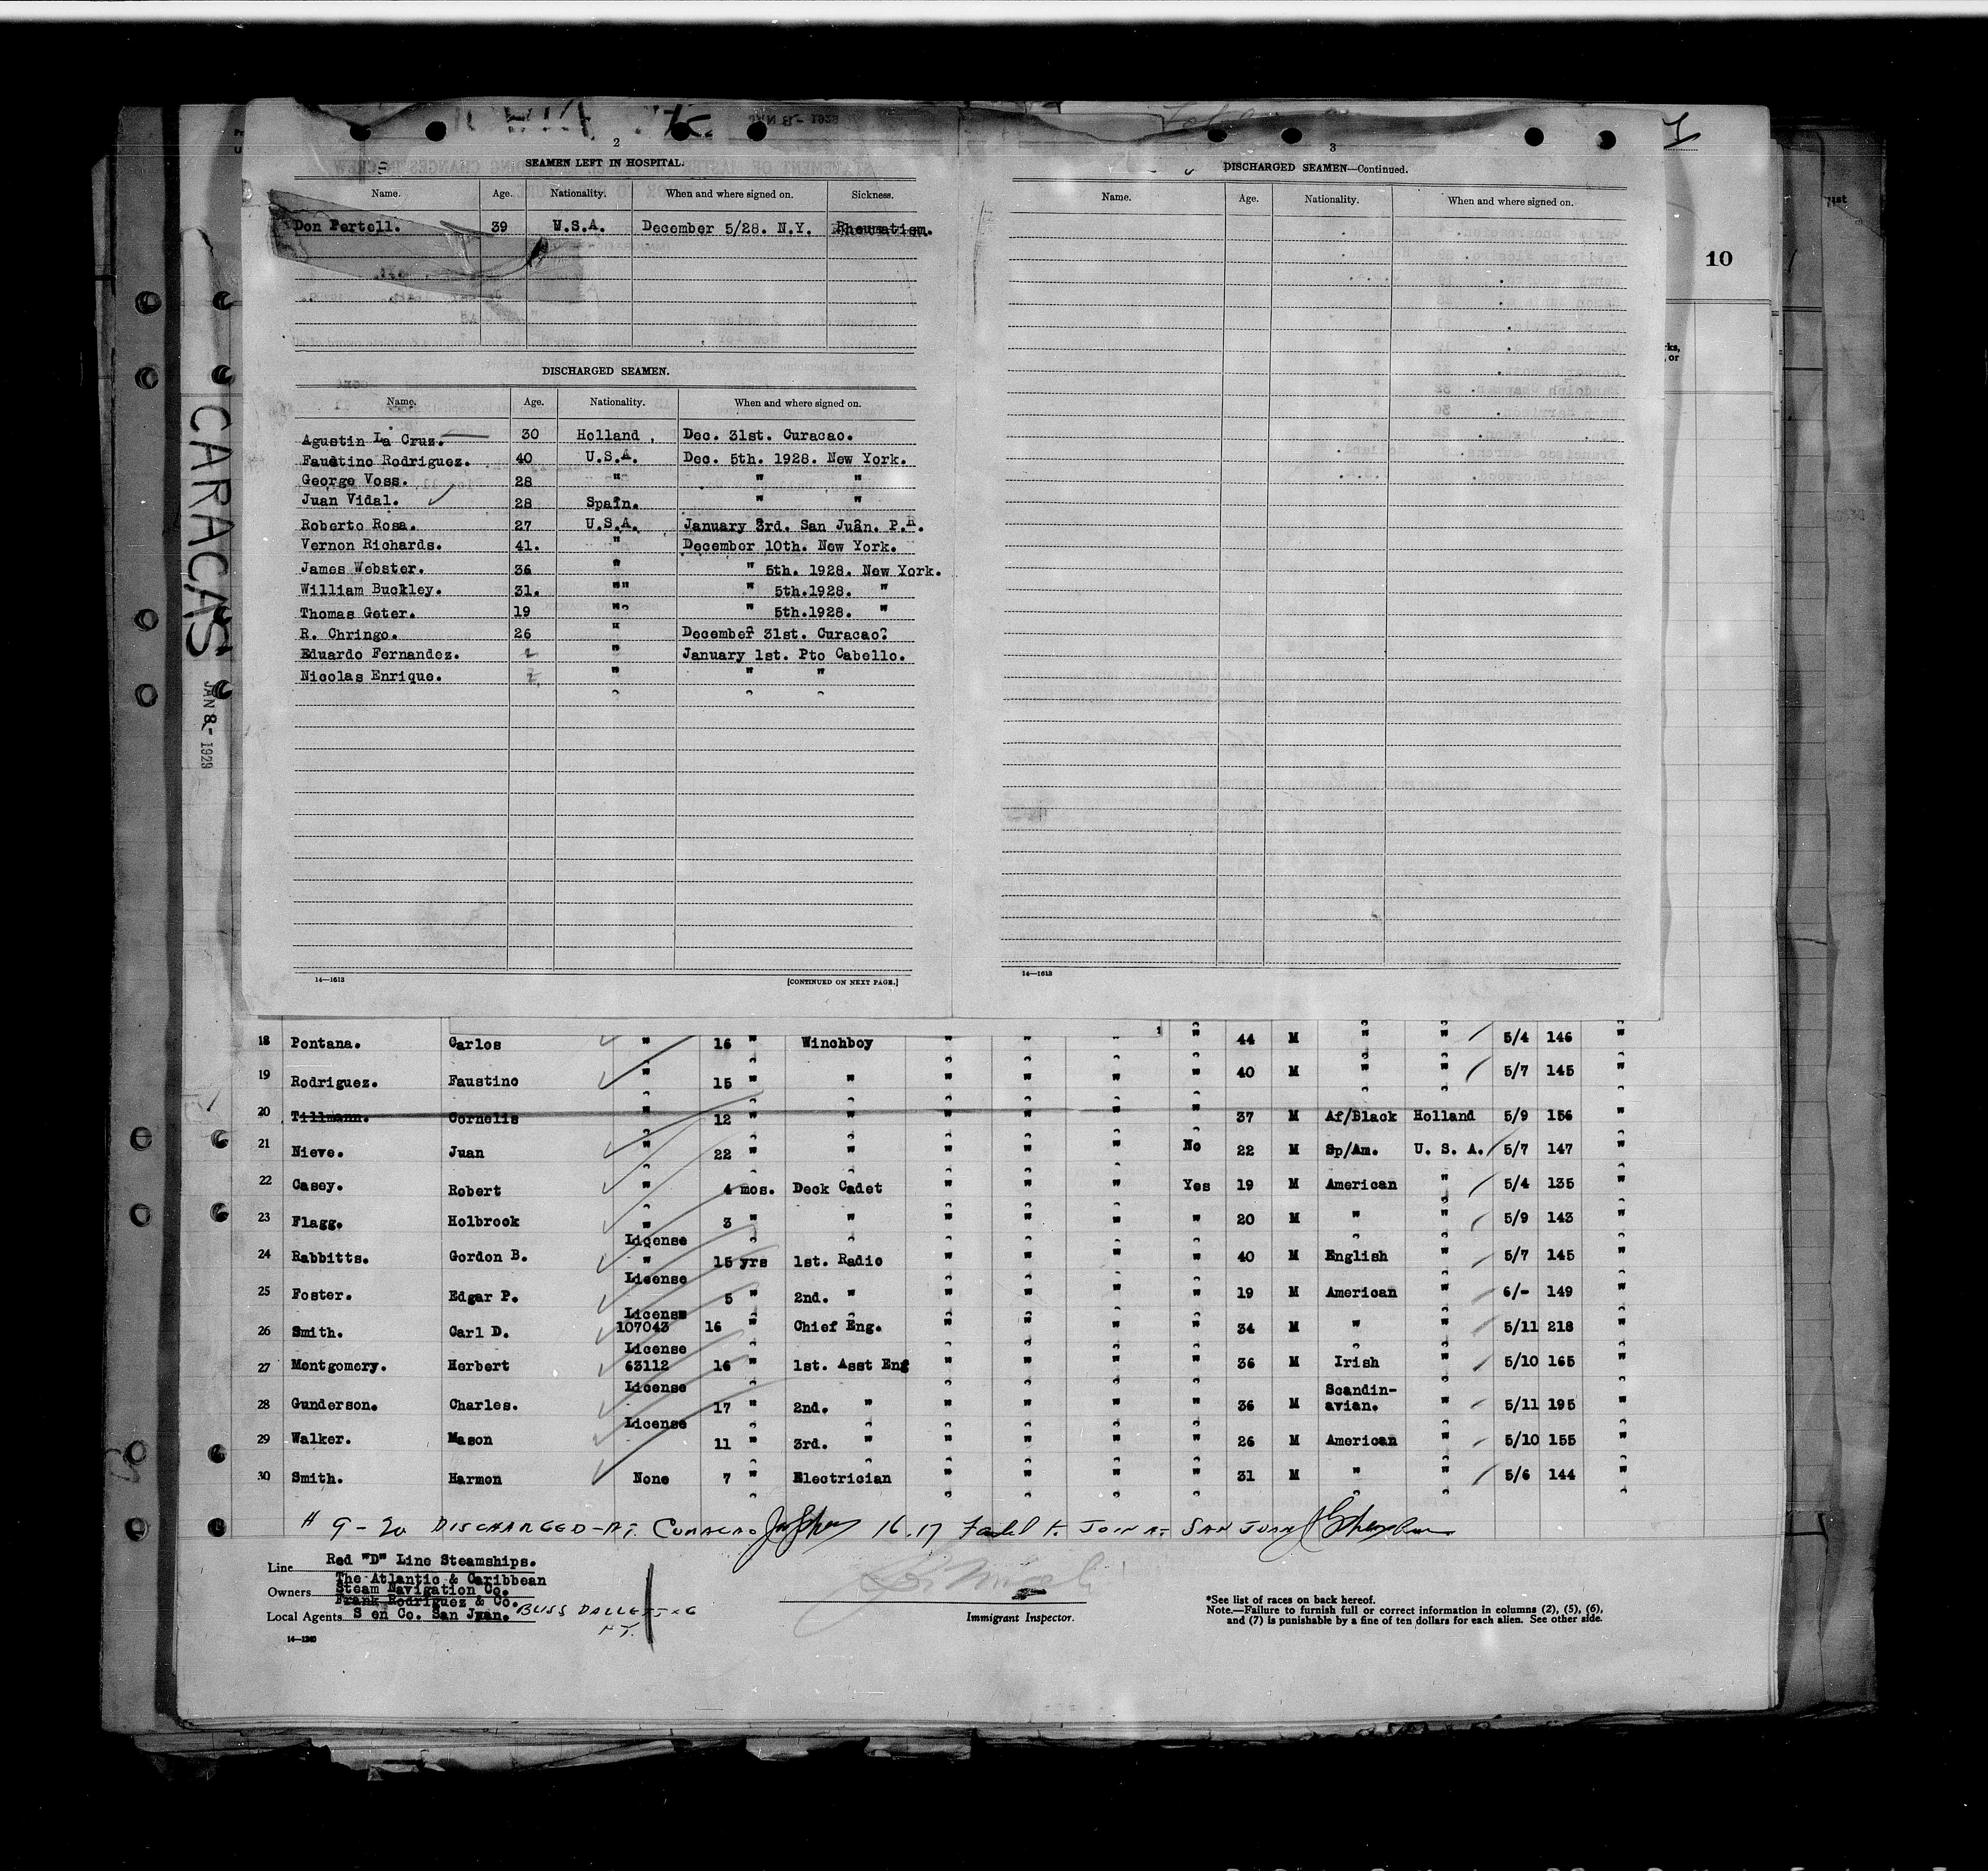 2
SEAMEN LEFT IN HOSPITAL.
Name. Age. Nationality. When and where signed on. Sickness.
Don Pertell. 39 U.S.A. December 5/28. N.Y. Rheumatism.
DISCHARGED SEAMEN.
Name. Age. Nationality. When and where signed on.
Agustin La Cruz. 30 Holland. Dec. 31st. Curacao.
Faustino Rodriguez. 40 U.S.A. Dec. 5th. 1928. New York.
George Voss. 28 " " "
Juan Vidal. 28 Spain. " "
Roberto Rosa. 27 U.S.A. January 3rd. San Juan. P.R.
Vernon Richards. 41. " December 10th. New York.
James Webster. 36 " " 5th. 1928. New York.
William Buckley. 31. "" " 5th.1928. "
Thomas Geter. 19 " " 5th.1928. "
R. Chringo. 26 " December 31st. Curacao.
Eduardo Fernandez. " January 1st. Pto Cabello.
Nicolas Enrique. " " "
14—1613 [CONTINUED ON NEXT PAGE.]
3
DISCHARGED SEAMEN—Continued.
Name. Age. Nationality. When and where signed on.
14—1613
10
rks,
, or
CARACAS
JAN 8 - 1929
18 Pontana. Carlos " 16 " Winchboy " " " " 44 M " " 5/4 146 "
19 Rodriguez. Faustino " 15 " " " " " " 40 M " " 5/7 145 "
20 Tillmann. Cornelis " 12 " " " " " " 37 M Af/Black Holland 5/9 156 "
21 Nieve. Juan " 22 " " " " " No 22 M Sp/Am. U. S. A. 5/7 147 "
22 Casey. Robert " 4 mos. Deck Cadet " " " Yes 19 M American " 5/4 135 "
23 Flagg. Holbrook " 3 " " " " " " 20 M " " 5/9 143 "
License
24 Rabbitts. Gordon B. " 15 yrs 1st. Radio " " " " 40 M English " 5/7 145 "
License
25 Foster. Edgar P. 5 " 2nd. " " " " " 19 M American " 6/- 149 "
License
26 Smith. Carl D. 107043 16 " Chief Eng. " " " " 34 M " " 5/11 218 "
License
27 Montgomery. Herbert 63112 16 " 1st. Asst Eng " " " " 36 M Irish " 5/10 165 "
License
28 Gunderson. Charles. 17 " 2nd. " " " " " 36 M Scandin-
avian. " 5/11 195 "
License
29 Walker. Mason 11 " 3rd. " " " " " 26 M American " 5/10 155 "
30 Smith. Harmon None 7 " Electrician " " " " 31 M " " 5/6 144 "
# 9-20 DISCHARGED - AT. CURACAO 16.17 Failed to JOIN AT SAN JUAN
Line Red "D" Line Steamships.
The Atlantic & Caribbean
Owners Steam Navigation Co.
Frank Rodriguez & Co.
Local Agents S en Co. San Juan. BLISS DALLETT & C
14—1240
Immigrant Inspector.
*See list of races on back hereof.
Note.—Failure to furnish full or correct information in columns (2), (5), (6),
and (7) is punishable by a fine of ten dollars for each alien. See other side.